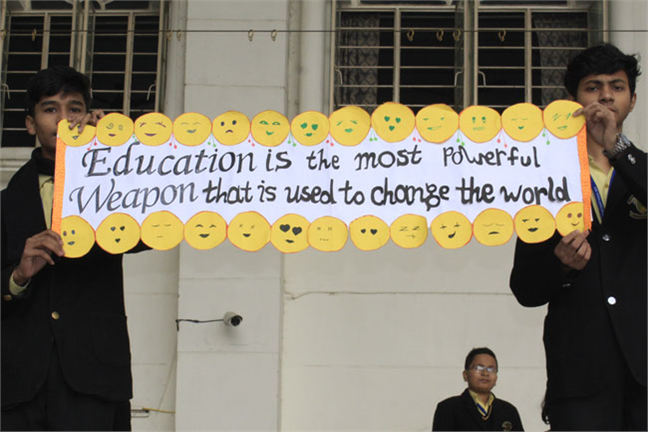 Education is the most Powerful
Weapon that is used to change the world